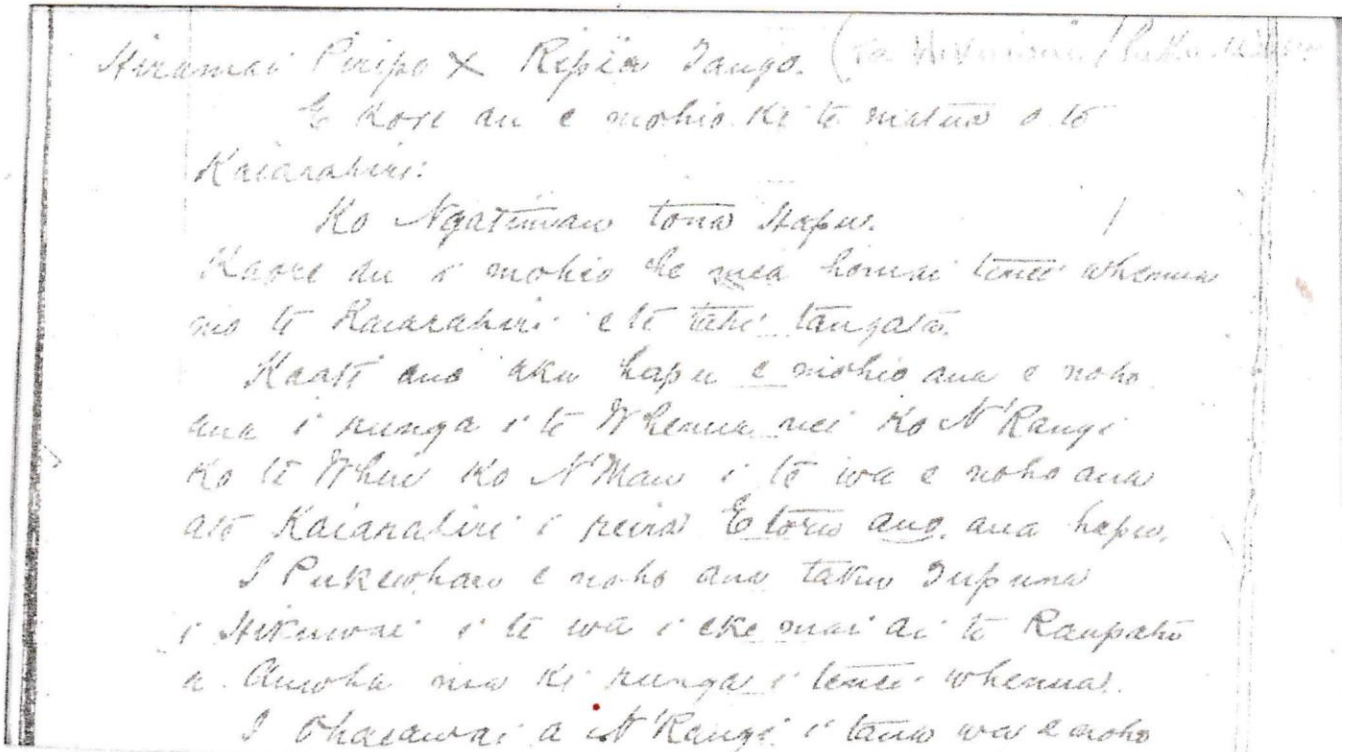 Hiramai Piripo x Ripia Tango. (
E kore au e mohio ki te matua o te
Kaiarahiri:
Ko Ngatimau tona Hapu.
Kaore au i mohio he mea homai tenei whenua
mo te Kaiarahiri e te tahi tangata.
Kaati ano aku hapu e mohio ana e noho
ana i runga i te Whenua nei Ko N'Rangi
Ko te Whiu Ko N'Mau i te wa e noho ana
ate Kaiarahiri i reira Etoru ano ana hapu.
I Pukewhau e noho ana taku Tupuna
i Hikuwai i te wa i eke mai ai te Raupatu
a Auwha ma ki runga i tenei whenua.
I Ohaeawai a N'Rangi i taua wa e noho